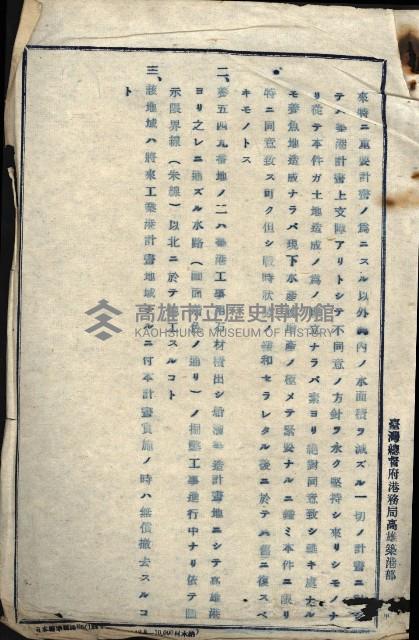 來特ニ重要計畫ノ爲ニスル以外 內ノ水面積ヲ減ズル一切ノ計畫ニ
テハ築港計畫上支障アリトシテ不同意ノ方針ヲ永ク堅持シ來リシモノナ
リ從テ本件ガ土地造成ノ爲ノ 立ナラバ素ヨリ絕對同意致シ難キ處ナル
モ養魚地造成ナラバ現下水產 增產ノ極メテ緊要ナルニ鑑ミ本件ニ限リ
特ニ同意致ス可ク但シ戰時狀 ノ緩和セラレタル後ニ於テハ舊ニ復スベ
キモノトス
二、 五四九番地ノ二ハ築港工事用石材積出シ 計畫地ニシテ高雄港
ヨリ之レニ通ズル水路(圖面 ノ通リ)ノ掘鑿工事進行中ナリ依テ圖
示限界線(朱線)以北ニ於テ 工スルコト
三、該地域ハ將來工業港計畫地域 ルニ付本計畫實施ノ時ハ無償撤去スルコ
ト
臺灣總督府港務局高雄築港部
高雄市立歷史博物館
KAOHSIUNG MUSEUM OF HISTORY